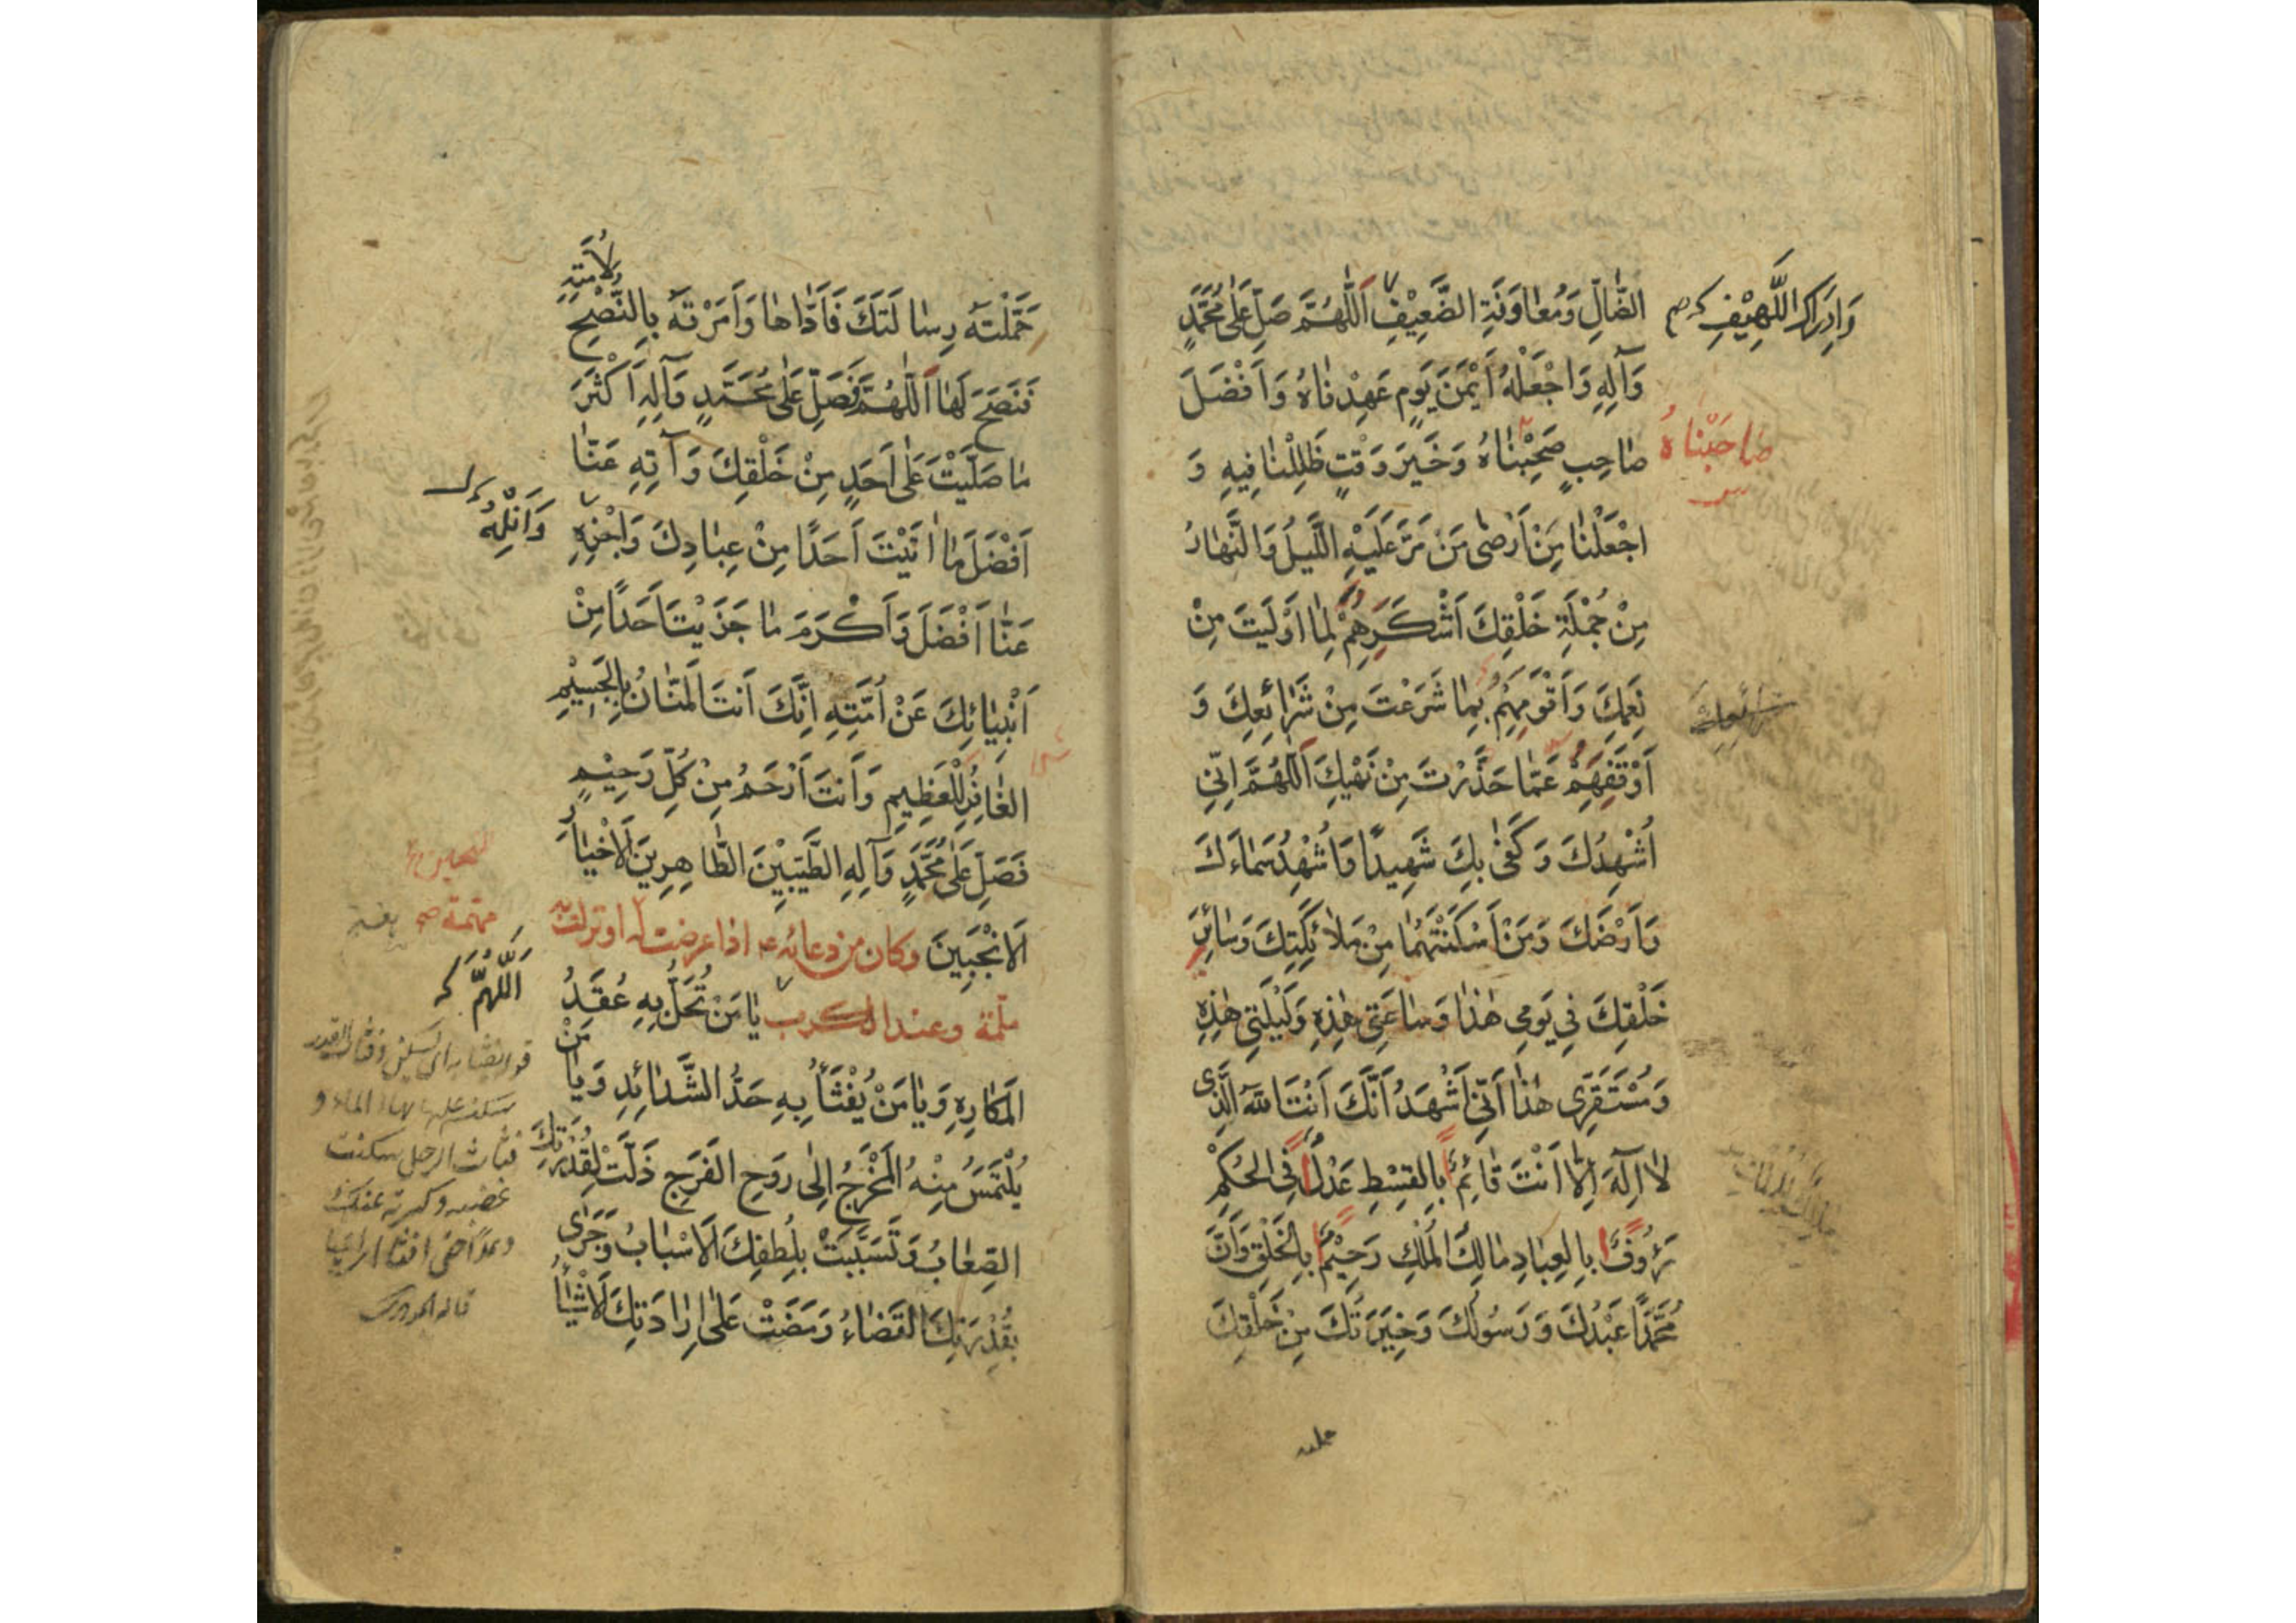 الضَّالِّ وَمُعَاوَنَةِ الضَّعِيْفِ اَللّٰهُمَّ صَلِّ عَلٰى مُحَمَّدٍ
وَاِدْرَاكِ اللَّهِيْفِ
وَآلِهِ وَاجْعَلْهُ اَيْمَنَ يَوْمٍ عَهِدْنَاهُ وَاَفْضَلَ
صَاحِبٍ صَحِبْنَاهُ وَخَيْرَ وَقْتٍ ظَلِلْنَا فِيهِ وَ
صَاحَبْنَاهُ
اجْعَلْنَا مِنْ اَرْضٰى مَنْ مَرَّ عَلَيْهِ اللَّيْلُ وَالنَّهَارُ
مِنْ جُمْلَةِ خَلْقِكَ اَشْكَرِهِمْ لِمَا اَوْلَيْتَ مِنْ
نِعَمِكَ وَاَقْوَمِهِمْ بِمَا شَرَعْتَ مِنْ شَرَايِعِكَ وَ
شرايعك
اَوْقَفِهِمْ عَمَّا حَذَّرْتَ مِنْ نَهْيِكَ اَللّٰهُمَّ اِنِّي
اُشْهِدُكَ وَكَفٰى بِكَ شَهِيدًا وَاُشْهِدُ سَمَاءَكَ
وَاَرْضَكَ وَمَنْ اَسْكَنْتَهُمَا مِنْ مَلَائِكَتِكَ وَسَائِرِ
خَلْقِكَ فِي يَوْمِي هٰذَا وَسَاعَتِي هٰذِهِ وَلَيْلَتِي هٰذِهِ
وَمُسْتَقَرِّي هٰذَا اَنِّي اَشْهَدُ اَنَّكَ اَنْتَ اللّٰهُ الَّذِي
لَا اِلٰهَ اِلَّا اَنْتَ قَائِمًا بِالْقِسْطِ عَدْلًا فِي الْحُكْمِ
رَؤُوفًا بِالْعِبَادِ مَالِكَ الْمُلْكِ رَحِيْمًا بِالْخَلْقِ وَاَنَّ
مُحَمَّدًا عَبْدُكَ وَرَسُولُكَ وَخِيَرَتُكَ مِنْ خَلْقِكَ
حملته
حَمَّلْتَهُ رِسَالَتَكَ فَاَدَّاهَا وَاَمَرْتَهُ بِالنُّصْحِ لِاُمَّتِهِ
فَنَصَحَ لَهَا اَللّٰهُمَّ فَصَلِّ عَلٰى مُحَمَّدٍ وَآلِهِ اَكْثَرَ
مَا صَلَّيْتَ عَلٰى اَحَدٍ مِنْ خَلْقِكَ وَآتِهِ عَنَّا
اَفْضَلَ مَا اٰتَيْتَ اَحَدًا مِنْ عِبَادِكَ وَاجْزِهِ
وَاَنِلْهُ
عَنَّا اَفْضَلَ وَاَكْرَمَ مَا جَزَيْتَ اَحَدًا مِنْ
اَنْبِيَائِكَ عَنْ اُمَّتِهِ اِنَّكَ اَنْتَ الْمَنَّانُ بِالْجَسِيْمِ
الْغَافِرُ لِلْعَظِيمِ وَاَنْتَ اَرْحَمُ مِنْ كُلِّ رَحِيْمٍ
فَصَلِّ عَلٰى مُحَمَّدٍ وَآلِهِ الطَّيِّبِيْنَ الطَّاهِرِينَ الْاَخْيَارِ
الْاَنْجَبِينَ وكان من دعائه ع اذا عرضت له او نزلت به
ملمّة وعند الكرب يَا مَنْ تُحَلُّ بِهِ عُقَدُ
اَللّٰهُمَّ
الْمَكَارِهِ وَيَا مَنْ يُفْثَأُ بِهِ حَدُّ الشَّدَائِدِ وَيَا مَنْ
يُلْتَمَسُ مِنْهُ الْمَخْرَجُ اِلٰى رَوْحِ الْفَرَجِ ذَلَّتْ لِقُدْرَتِكَ
الصِّعَابُ وَتَسَبَّبَتْ بِلُطْفِكَ الْاَسْبَابُ وَجَرٰى
بِقُدْرَتِكَ الْقَضَاءُ وَمَضَتْ عَلٰى اِرَادَتِكَ الْاَشْيَاءُ